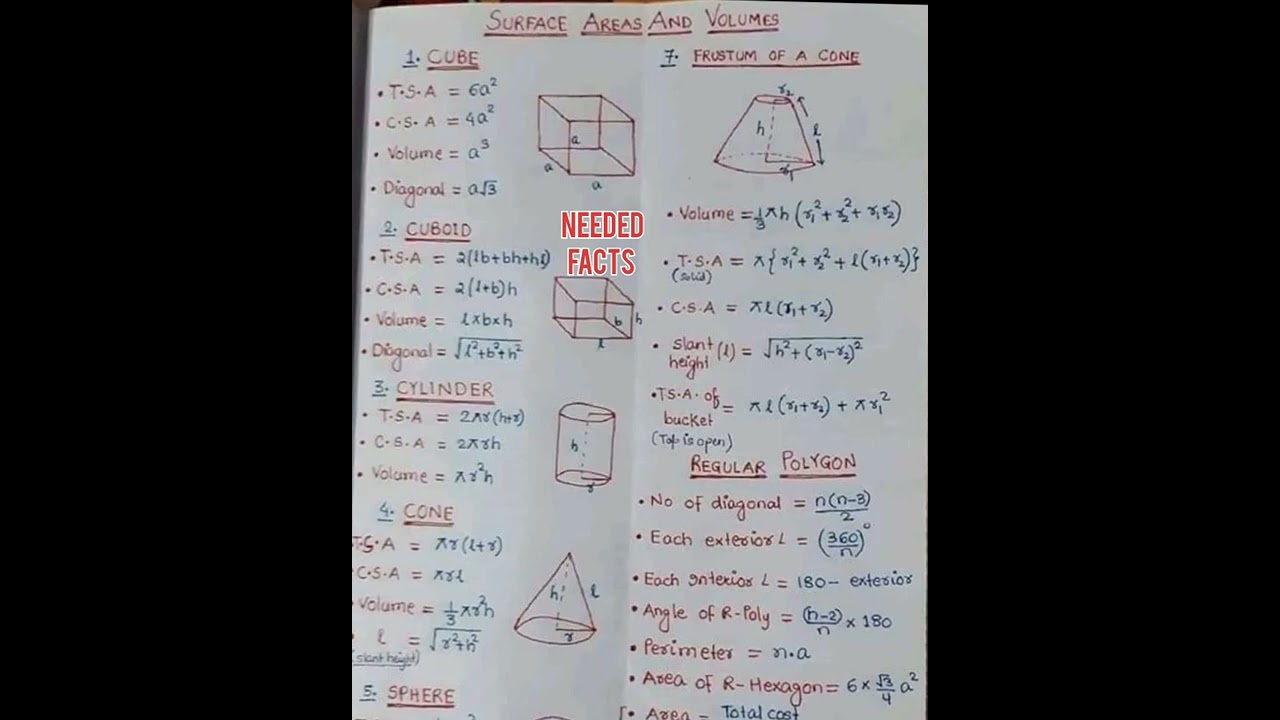 SURFACE AREAS AND VOLUMES
1. CUBE
• T.S.A = 6a²
• C.S.A = 4a²
• Volume = a³
• Diagonal = a√3
a
a
a
2. CUBOID
• T.S.A = 2(lb+bh+hl)
• C.S.A = 2(l+b)h
• Volume = l×b×h
• Diagonal = √l²+b²+h²
NEEDED
FACTS
b
h
l
3. CYLINDER
• T.S.A = 2πr(h+r)
• C.S.A = 2πrh
• Volume = πr²h
h
r
4. CONE
T.S.A = πr(l+r)
C.S.A = πrl
Volume = 1/3 πr²h
l = √r²+h²
(slant height)
h
l
r
5. SPHERE
7. FRUSTUM OF A CONE
r₂
h
l
r₁
• Volume = 1/3 πh (r₁²+r₂²+r₁r₂)
• T.S.A = π{r₁²+r₂²+l(r₁+r₂)}
(solid)
• C.S.A = πl(r₁+r₂)
• slant height (l) = √h²+(r₁-r₂)²
• T.S.A. of bucket = πl(r₁+r₂) + πr₁²
(Top is open)
REGULAR POLYGON
• No of diagonal = n(n-3)/2
• Each exterior ∠ = (360/n)°
• Each interior ∠ = 180 - exterior
• Angle of R-Poly = (n-2)/n × 180
• Perimeter = n.a
• Area of R-Hexagon = 6 × √3/4 a²
• Area = Total cost